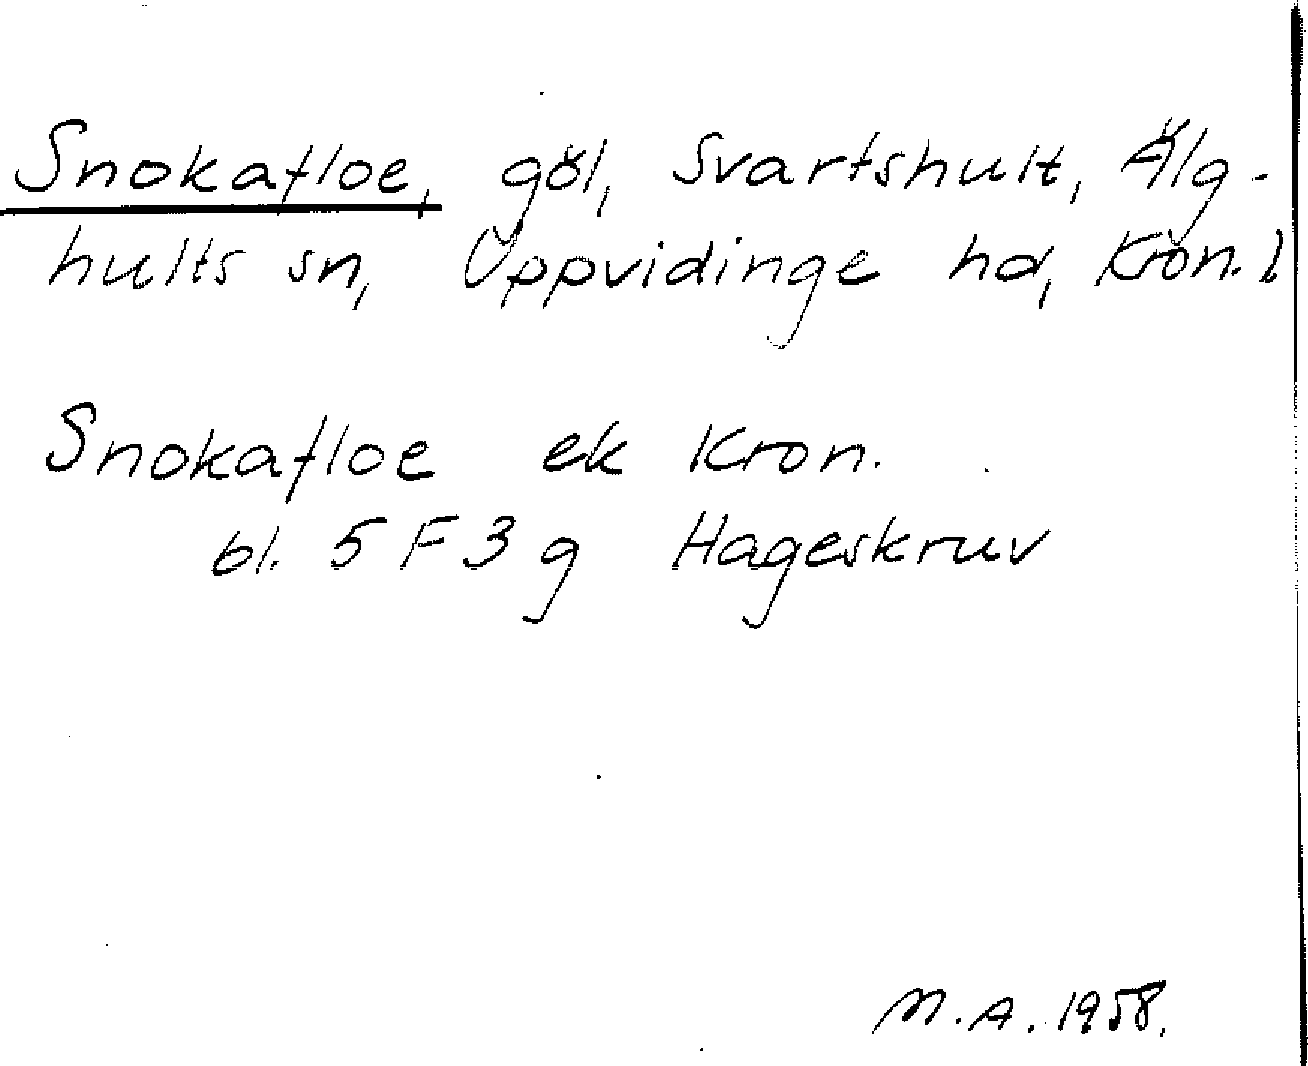 Snokafloe, göl, Svartshult, Älg-
hults sn, Uppvidinge hd, Kron. l
Snokafloe ek Kron.
bl. 5 F 3 g Hageskruv
M.A. 1958.